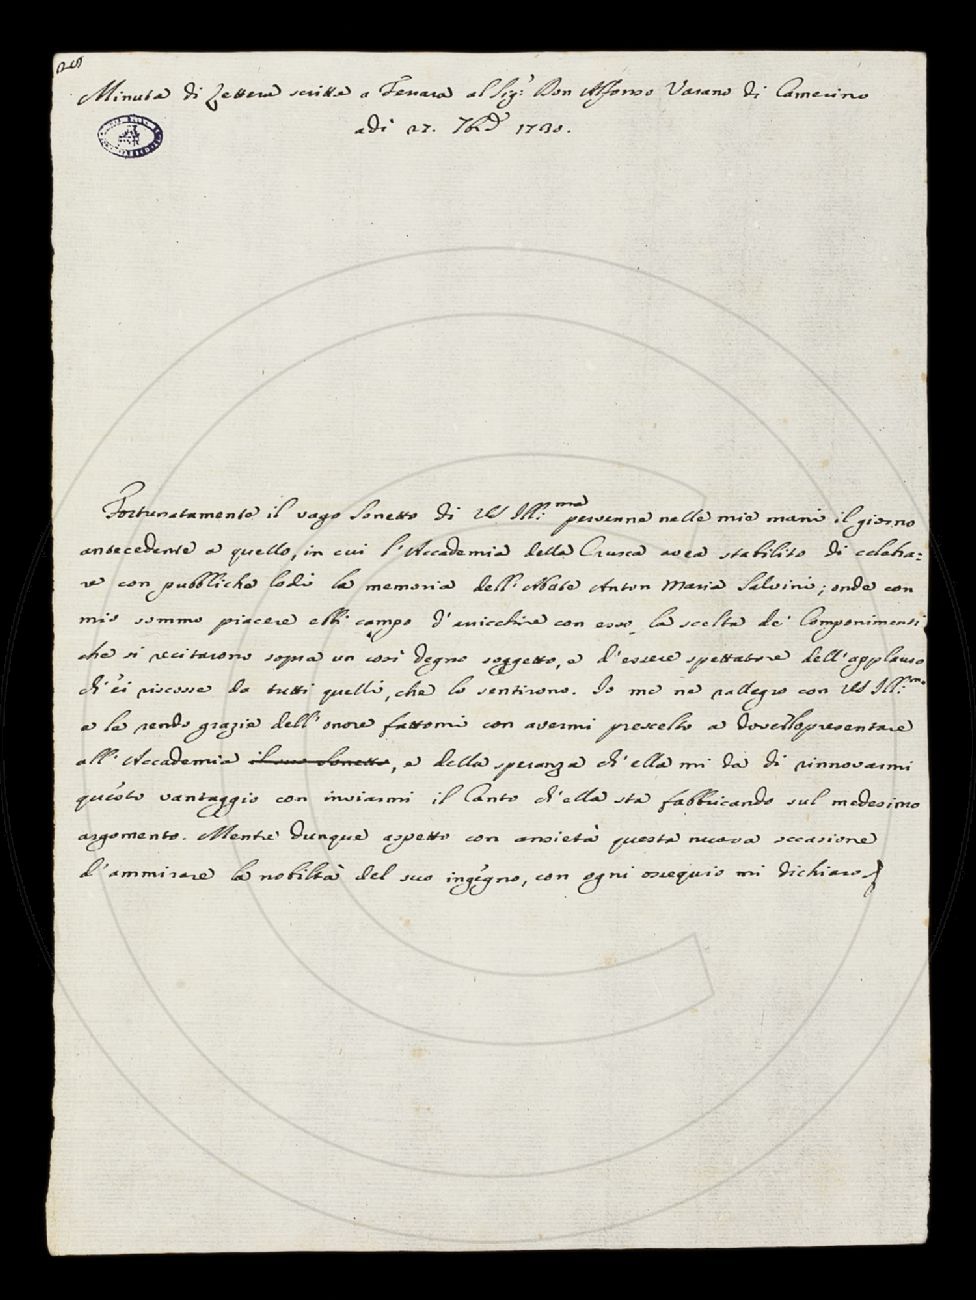 Minuta di Lettera scritta a Ferrara al Sig.r Don Alfonso Varano di Camerino
adi 27. 7bre 1730.
Fortunatamente il vago Sonetto di VS Ill.ma pervenne nelle mie mani il giorno
antecedente a quello, in cui l'Accademia della Crusca avea stabilito di celebra=
re con pubbliche lodi la memoria dell'Abate Anton Maria Salvini; onde con
mio sommo piacere ebbi campo d'arricchire con esso la scelta de' Componimenti
che si recitarono sopra un così degno soggetto, e d'essere spettatore dell'applauso
ch'ei riscosse da tutti quelli, che lo sentirono. Io me ne rallegro con VS Ill.ma
e le rendo grazie dell'onore fattomi con avermi prescelto a doverlo presentare
all'Accademia il suo Sonetto, e della speranza ch'ella mi dà di rinnovarmi
questo vantaggio con inviarmi il Canto ch'ella sta fabbricando sul medesimo
argomento. Mentre dunque aspetto con ansietà questa nuova occasione
d'ammirare la nobiltà del suo ingegno, con ogni ossequio mi dichiaro